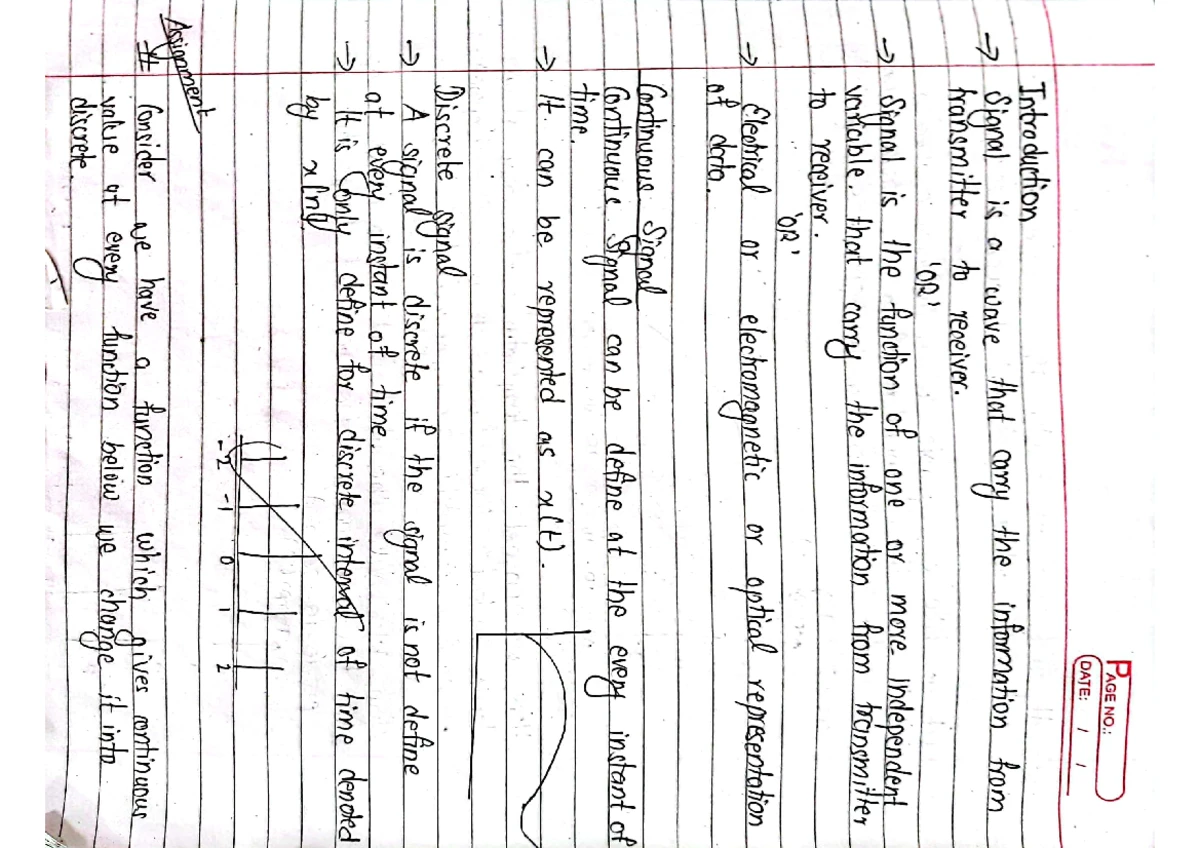 PAGE NO.:
DATE: / /
Introduction
→ Signal is a wave that carry the information from
transmitter to receiver.
'OR'
→ Signal is the function of one or more independent
variable. that carry the information from transmitter
to receiver.
'OR'
→ Electrical or electromagnetic or optical representation
of data.
Continuous Signal
Continuous Signal can be define at the every instant of
time.
→ It can be represented as x(t).
Discrete signal
→ A signal is discrete if the signal is not define
at every instant of time.
→ It is only define for discrete interval of time denoted
by x[n].
-2 -1 0 1 2
Assignment
# Consider we have a function which gives continuous
value at every function below we change it into
discrete.